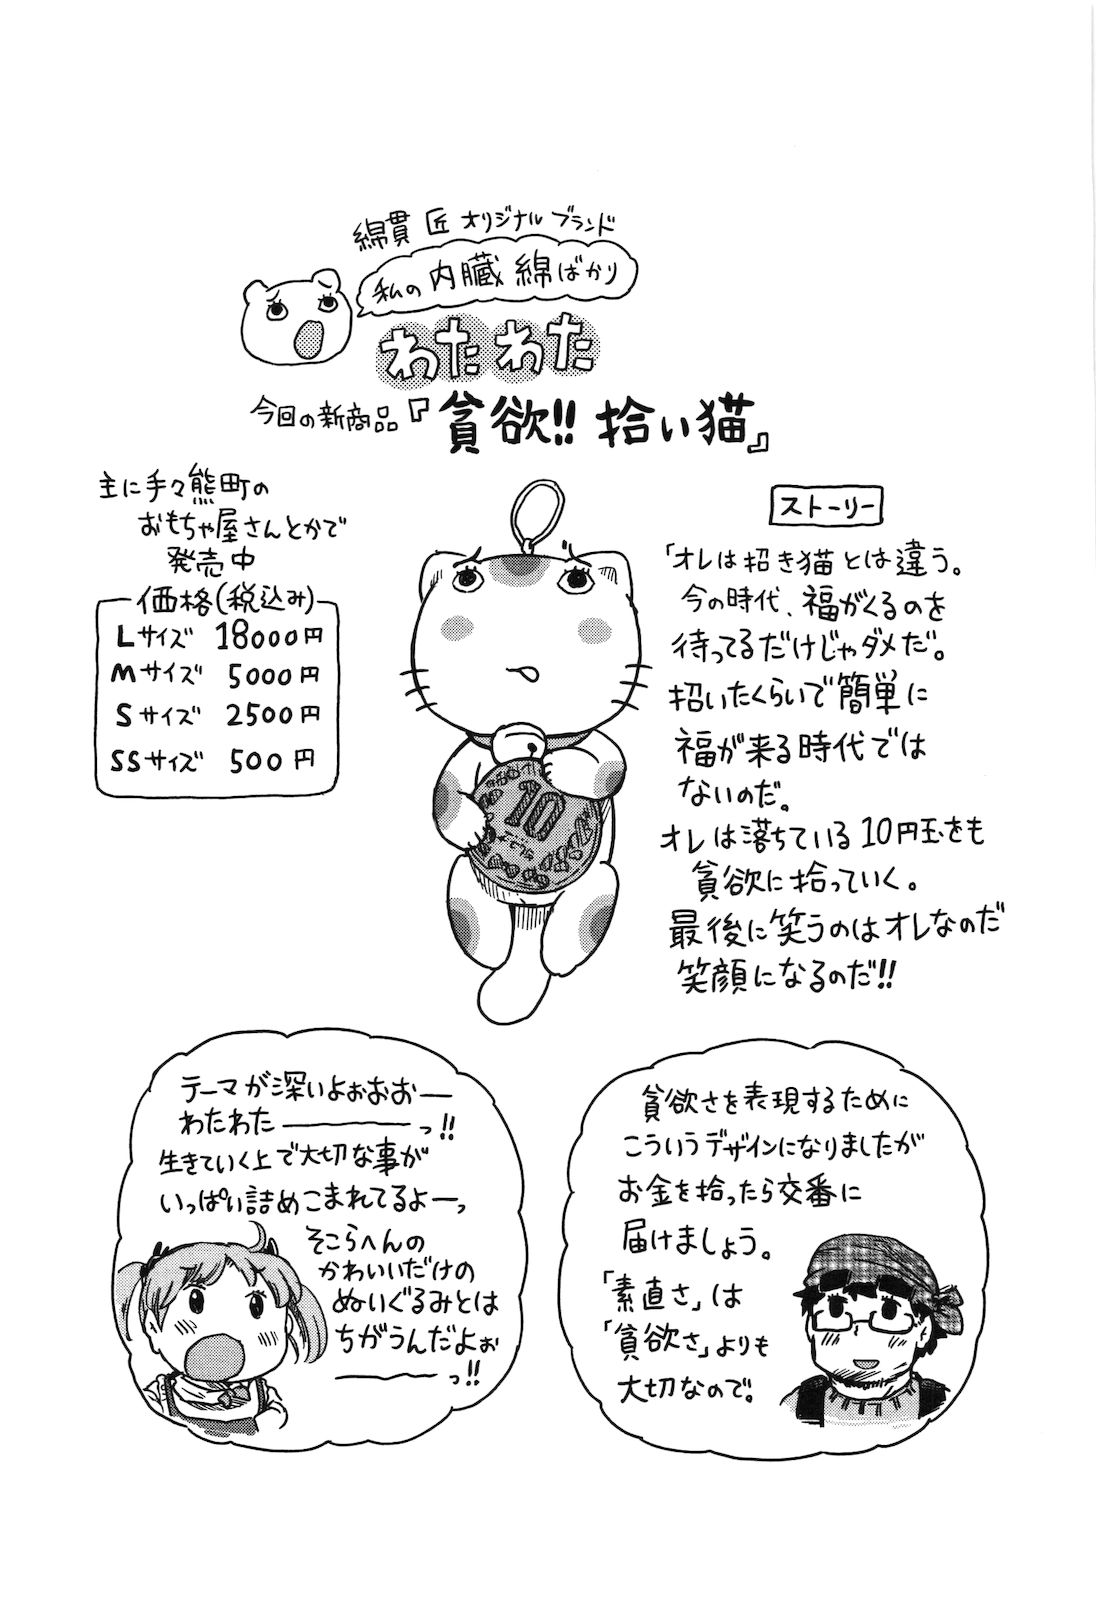 綿貫 匠 オリジナル ブランド
私の内臓 綿ばかり
わたわた
今回の新商品『貪欲!! 拾い猫』
主に手々熊町の
おもちゃ屋さんとかで
発売中
価格(税込み)
Lサイズ 18000円
Mサイズ 5000円
Sサイズ 2500円
SSサイズ 500円
10
ストーリー
「オレは招き猫とは違う。
今の時代、福がくるのを
待ってるだけじゃダメだ。
招いたくらいで簡単に
福が来る時代では
ないのだ。
オレは落ちている10円玉をも
貪欲に拾っていく。
最後に笑うのはオレなのだ
笑顔になるのだ!!
テーマが深いよぉおおー
わたわた――――っ!!
生きていく上で大切な事が
いっぱい詰めこまれてるよーっ
そこらへんの
かわいいだけの
ぬいぐるみとは
ちがうんだよぉ
――――っ!!
貪欲さを表現するために
こういうデザインになりましたが
お金を拾ったら交番に
届けましょう。
「素直さ」は
「貪欲さ」よりも
大切なので。